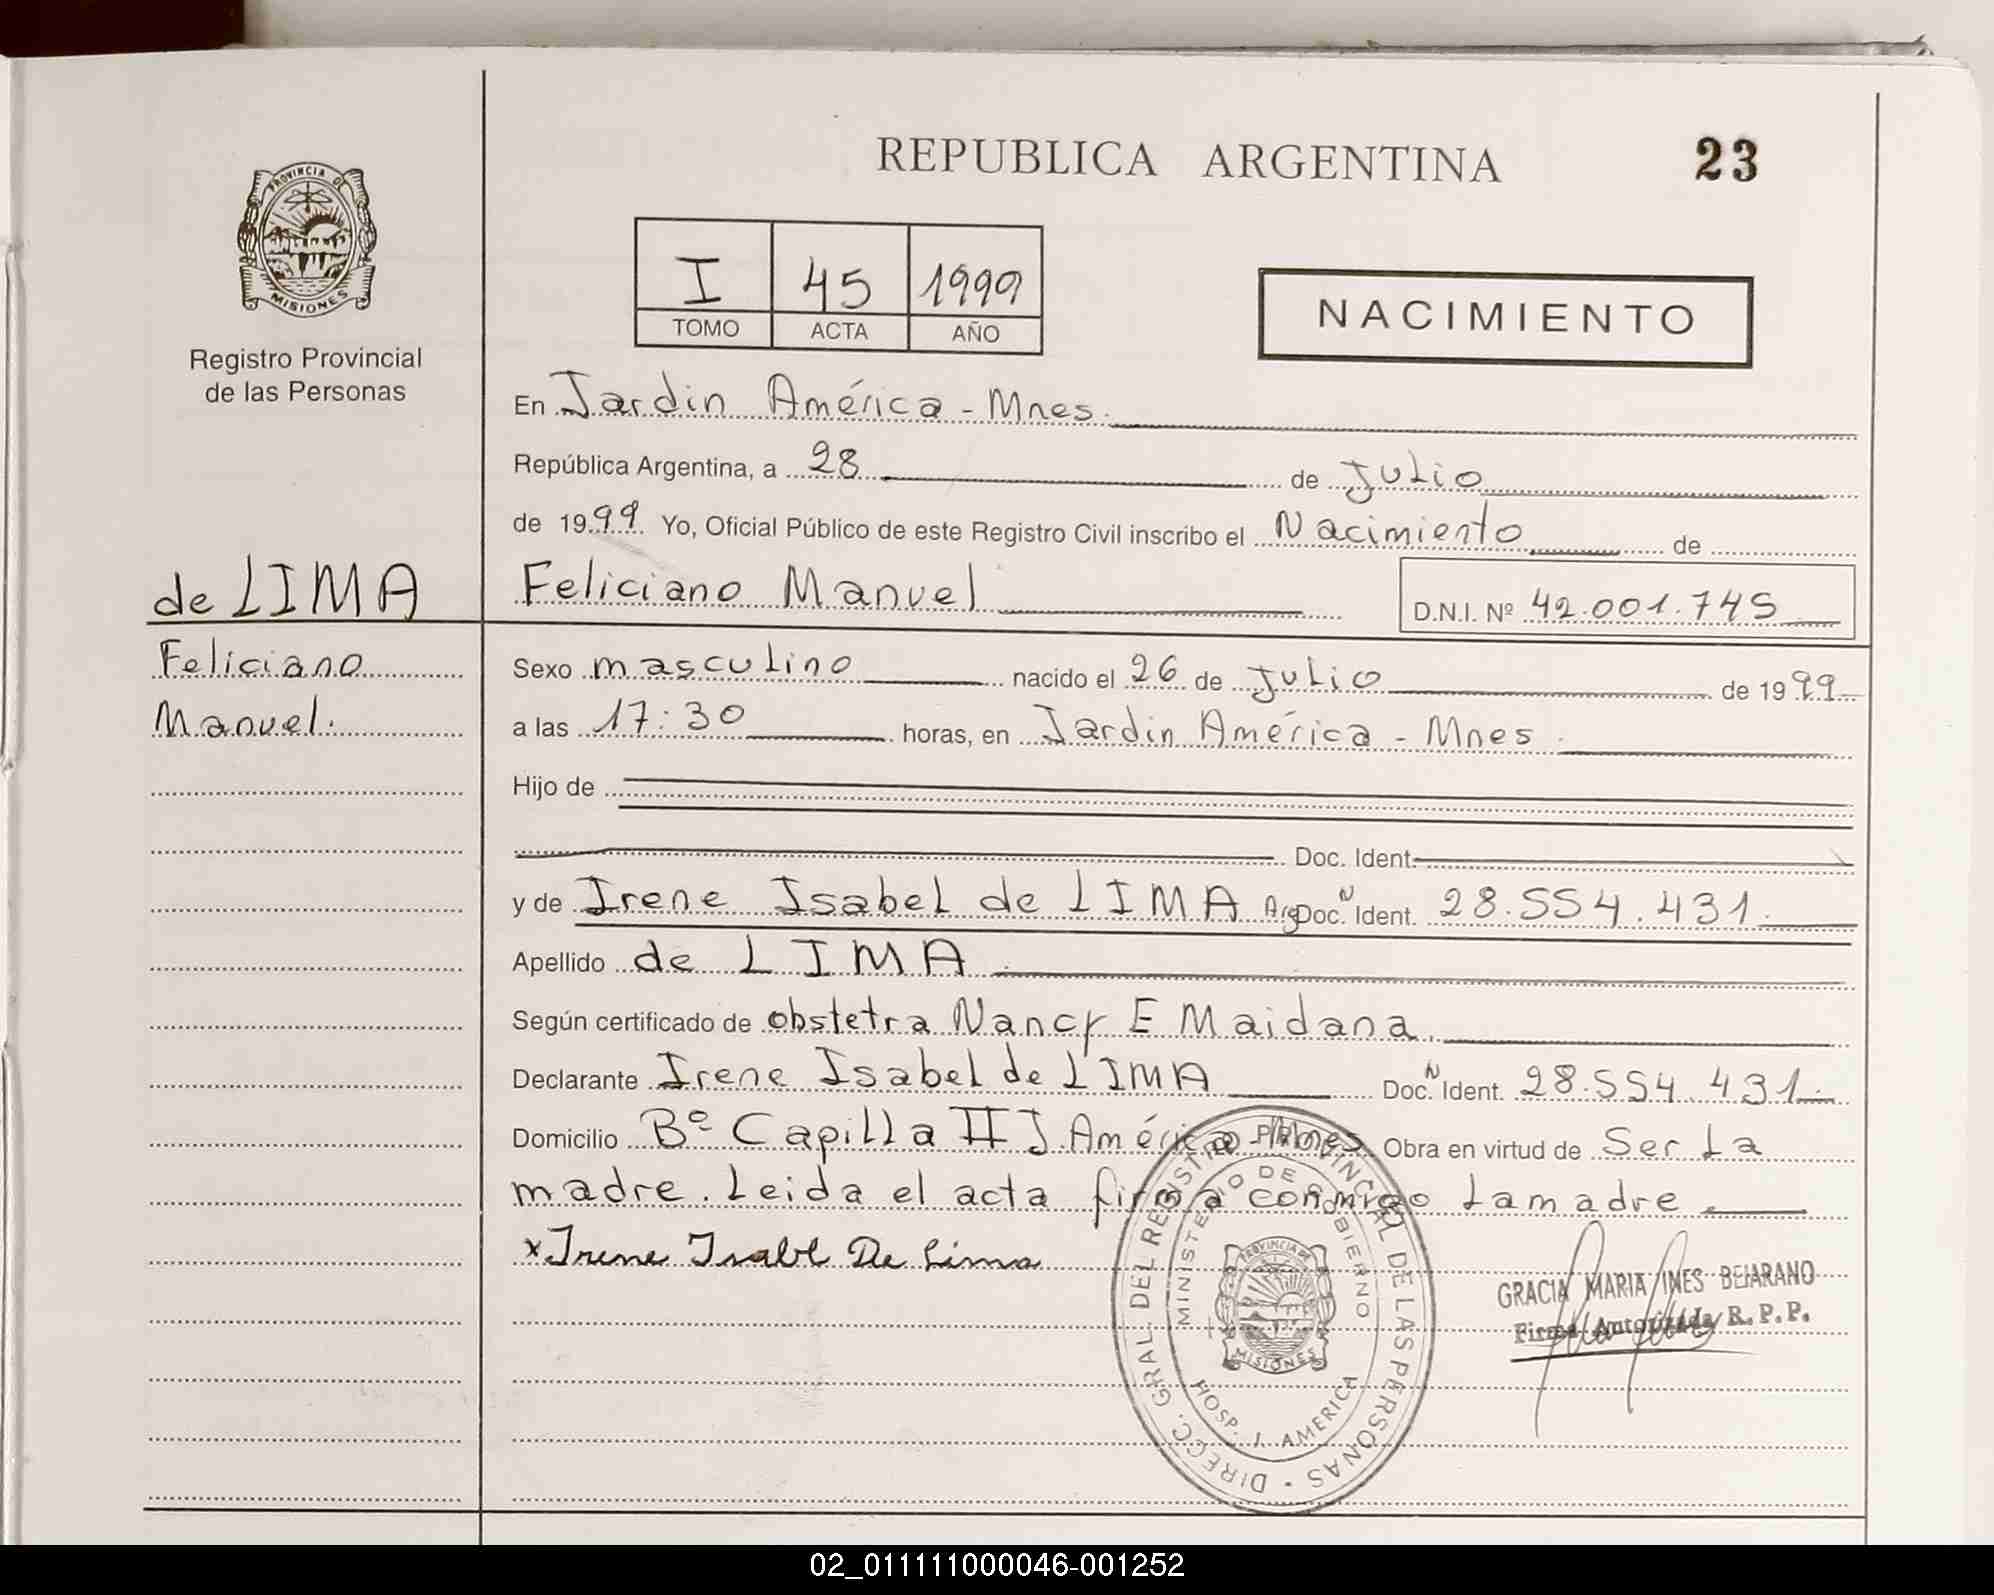 PROVINCIA DE
MISIONES
Registro Provincial
de las Personas
REPUBLICA ARGENTINA
23
I 45 1999
TOMO ACTA AÑO
NACIMIENTO
En Jardin América - Mnes.
República Argentina, a 28 de Julio
de 1999 Yo, Oficial Público de este Registro Civil inscribo el Nacimiento de
de LIMA
Feliciano Manuel
D.N.I. Nº 42.001.745
Feliciano
Manuel.
Sexo masculino nacido el 26 de Julio de 1999
a las 17:30 horas, en Jardin América - Mnes.
Hijo de
Doc. Ident.
y de Irene Isabel de LIMA Arg Doc. N Ident. 28.554.431.
Apellido de LIMA
Según certificado de obstetra Nancy E Maidana.
Declarante Irene Isabel de LIMA Doc. N Ident. 28.554.431.
Domicilio Bº Capilla II J. América - Mnes Obra en virtud de Ser La
madre. Leida el acta firma conmigo La madre
x Irene Isabl De Lima
DIRECC. GRAL. DEL REGISTRO PROVINCIAL DE LAS PERSONAS
MINISTERIO DE GOBIERNO
PROVINCIA DE
MISIONES
HOSP. J. AMERICA
GRACIA MARIA INES BEJARANO
Firma Autorizada R. P. P.
02_011111000046-001252